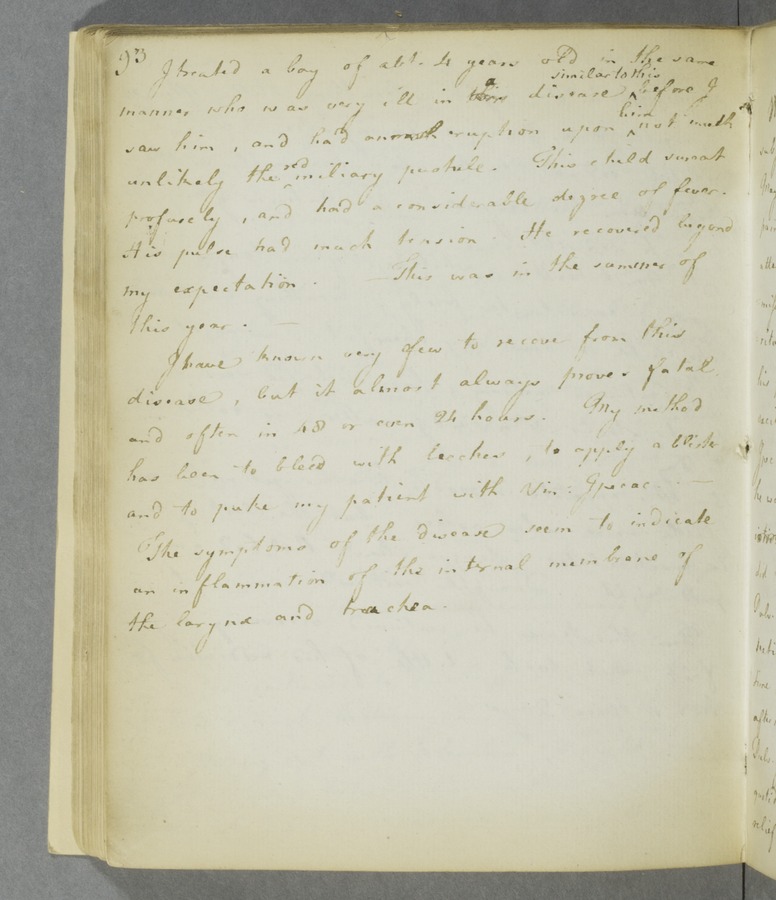 93
I treated a boy of abt. 4 years old in the same
manner who was very ill in a disease similar to this before I
saw him, and had an eruption upon him not much
unlikely the red miliary pustule. This child sweat
profusely, and had a considerable degree of fever.
His pulse had much tension. He recovered beyond
my expectation. — This was in the summer of
this year. —
I have known very few to recove from this
disease, but it almost always proves fatal
and often in 48 or even 24 hours. My method
has been to bleed with leeches, to apply a blister
and to puke my patient with Vin: Ipecac. —
The symptoms of the disease seem to indicate
an inflammation of the internal membrane of
the larynx and trachea.